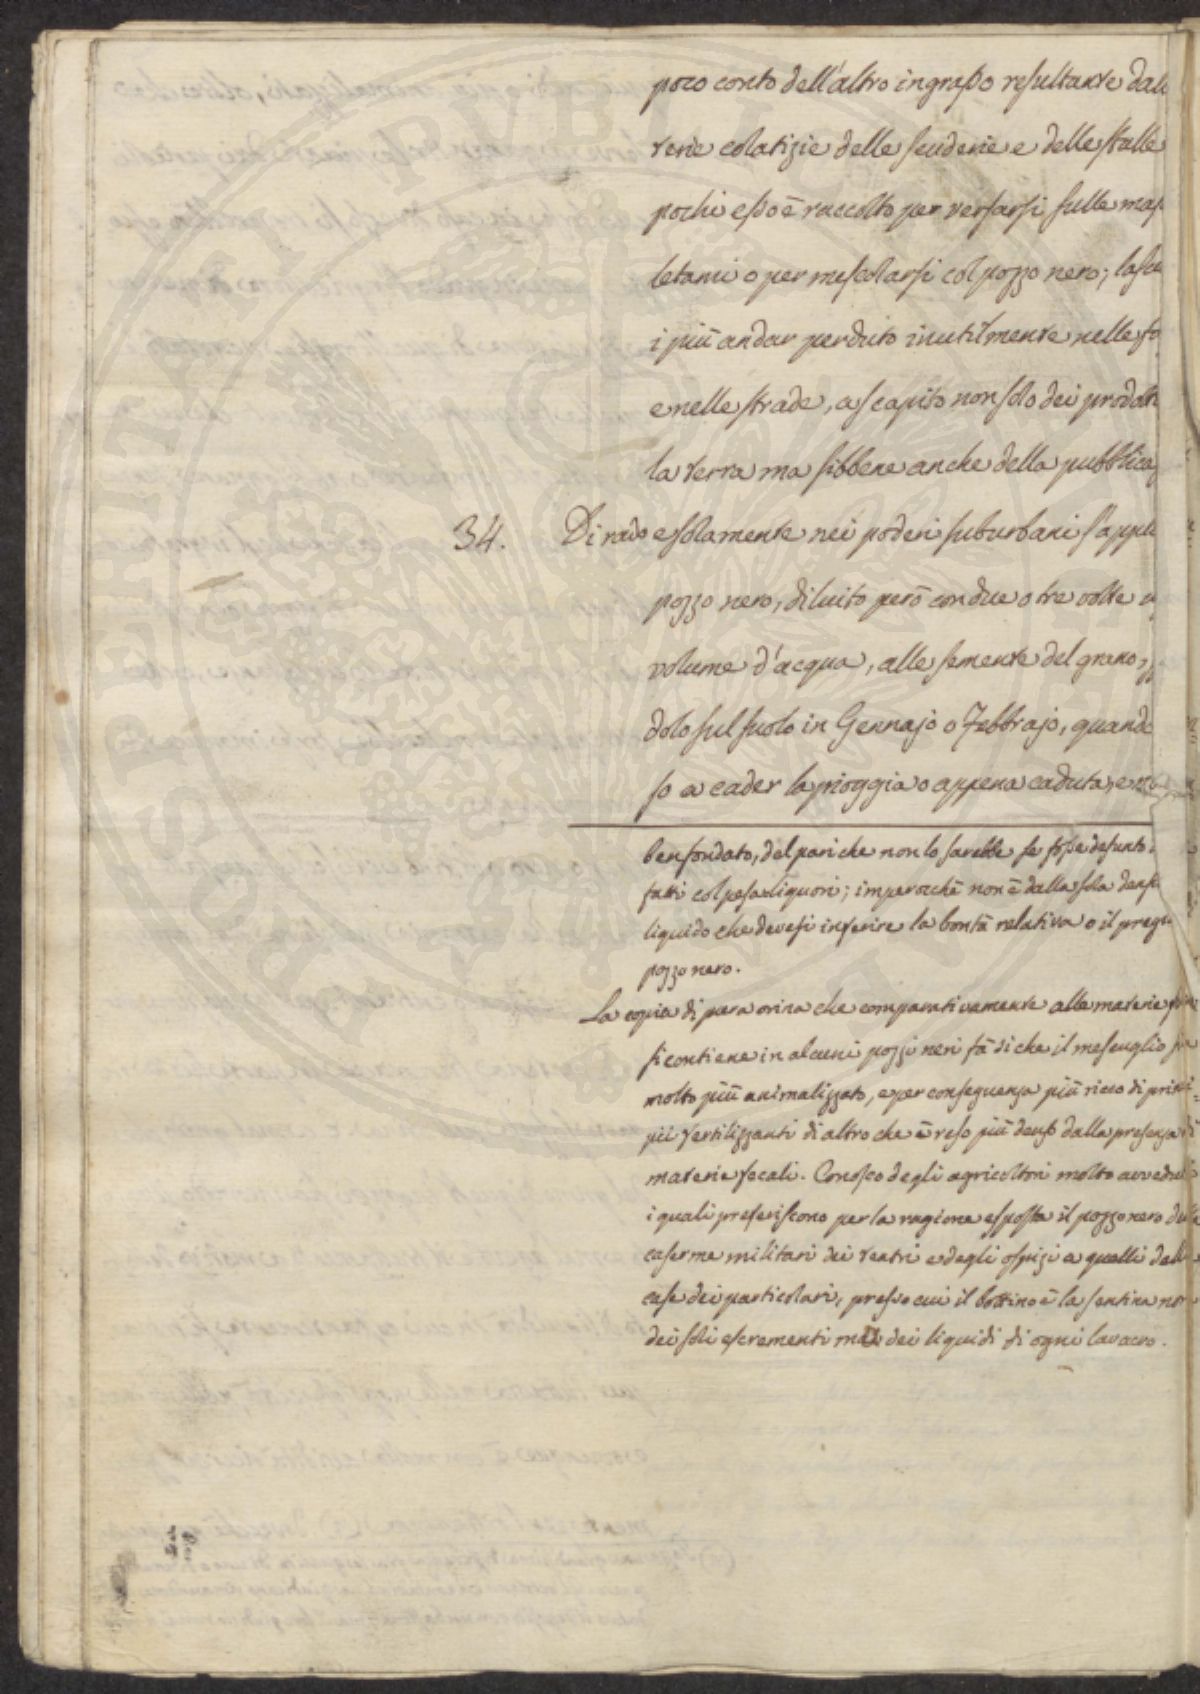 poco conto dell'altro ingrasso resultante dall
terie colatizie delle scuderie e delle stalle
pochi esso è raccolto per versarsi sulle mas
letami o per mescolarsi col pozzo nero; lasc
i più andar perduto inutilmente nelle fo
e nelle strade, a scapito non solo dei prodott
la terra ma sibbene anche della pubblica
34. Di rado e solamente nei poderi suburbani s'appli
pozzo nero, diluito però con due o tre volte
volume d'acqua, alle semente del grano,
dolo sul suolo in Gennajo o Febbrajo, quand
so a cader la pioggia o appena caduta, e
ben fondato, del pari che non lo sarebbe se fosse desunto
fatti col pesa-liquori; imperocchè non è dalla sola dens
liquido che devesi inferire la bontà relativa o il preg
pozzo nero.
La copia di pura orina che comparativamente alle materie
si contiene in alcuni pozzi neri fà sì che il mescuglio sia
molto più animalizzato, e per conseguenza più ricco di prin
pii fertilizzanti di altro che è reso più denso dalla presenza di
materie fecali. Conosco degli agricoltori molto avveduti
i quali preferiscono per la ragione esposta il pozzo nero delle
caserme militari dei teatri e degli ospizi a quelli delle
case dei particolari, presso cui il bottino è la sentina non
dei soli escrementi ma dei liquidi di ogni lavacro.